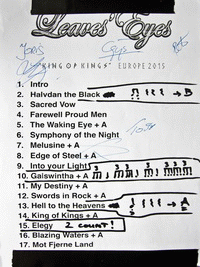 Leaves' Eyes
KING OF KINGS EUROPE 2015
1. Intro
2. Halvdan the Black → B
3. Sacred Vow
4. Farewell Proud Men
5. The Waking Eye + A
6. Symphony of the Night
7. Melusine + A
8. Edge of Steel + A
9. Into your Light
10. Galswintha + A
11. My Destiny + A
12. Swords in Rock + A
13. Hell to the Heavens → A
14. King of Kings + A
15. Elegy 2 count!
16. Blazing Waters + A
17. Mot Fjerne Land